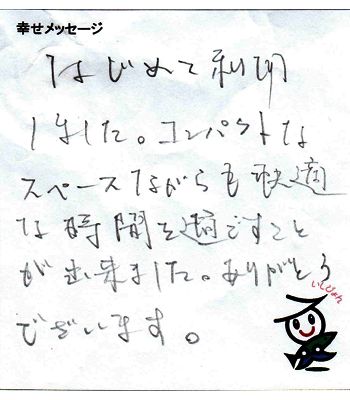 幸せメッセージ
はじめて利用
しました。コンパクトな
スペースながらも快適
な時間を過ごすこと
が出来ました。ありがとう
ございます。
いしぴょん